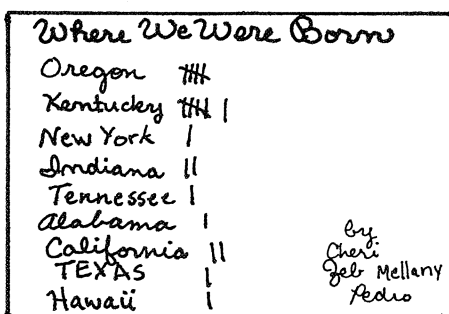 Where We Were Born
Oregon 卌
Kentucky 卌 |
New York |
Indiana ||
Tennessee |
Alabama |
California ||
TEXAS |
Hawaii |
by
Cheri
Zeb Mellany
Pedro